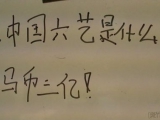 中国六艺是什么
马币三亿!